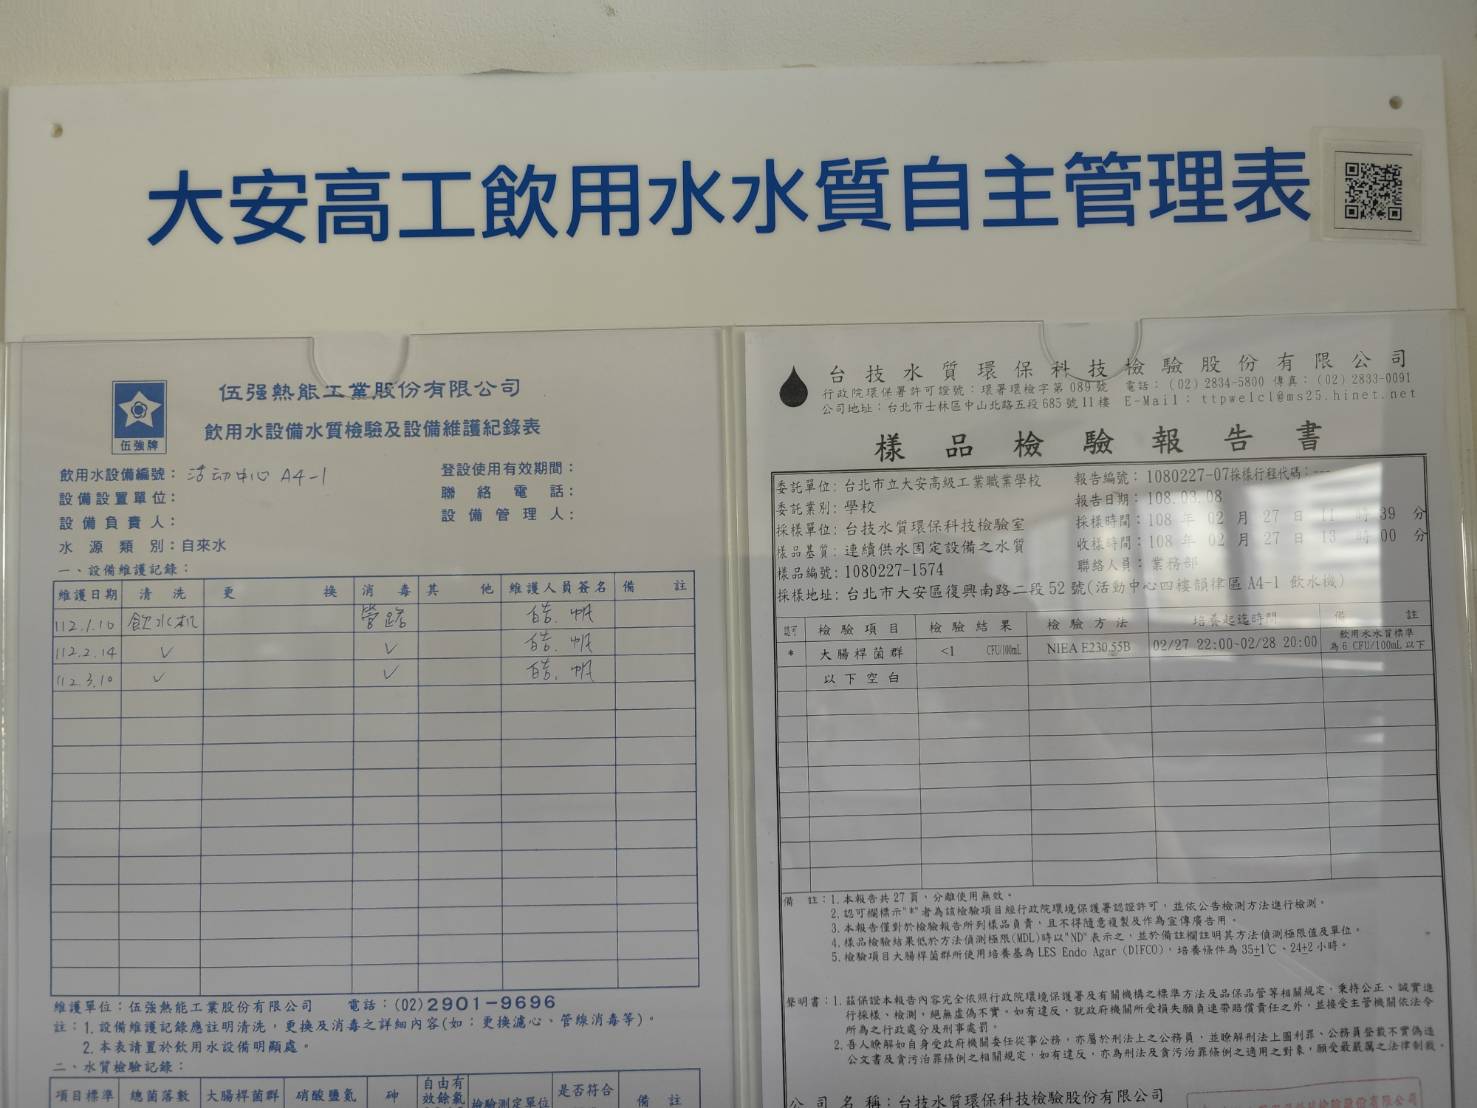 大安高工飲用水水質自主管理表
伍強牌
伍强熱能工業股份有限公司
飲用水設備水質檢驗及設備維護紀錄表
飲用水設備編號：活动中心 A4-1
登設使用有效期間：
設備設置單位：
聯絡電話：
設備負責人：
設備管理人：
水源類別：自來水
一、設備維護記錄：
維護日期 清洗 更換 消毒 其他 維護人員簽名 備註
112.1.10 飲水机 管路
112.2.14 ✓ ✓
112.3.10 ✓ ✓
維護單位：伍強熱能工業股份有限公司 電話：(02)2901-9696
註：1.設備維護記錄應註明清洗，更換及消毒之詳細內容(如：更換濾心、管線消毒等)。
2.本表請置於飲用水設備明顯處。
二、水質檢驗記錄：
項目標準 總菌落數 大腸桿菌群 硝酸鹽氮 砷 自由有效餘氯 檢驗測定單位 是否符合 備註
台技水質環保科技檢驗股份有限公司
行政院環保署許可證號：環署環檢字第089號 電話：(02)2834-5800 傳真：(02)2833-0091
公司地址：台北市士林區中山北路五段685號11樓 E-Mail：ttpwelcl@ms25.hinet.net
樣品檢驗報告書
委託單位：台北市立大安高級工業職業學校
報告編號：1080227-07採樣行程代碼：---
委託業別：學校
報告日期：108.03.08
採樣單位：台技水質環保科技檢驗室
採樣時間：108年02月27日11時39分
樣品基質：連續供水固定設備之水質
收樣時間：108年02月27日13時00分
樣品編號：1080227-1574
聯絡人員：業務部
採樣地址：台北市大安區復興南路二段52號(活動中心四樓韻律區A4-1 飲水機)
認可 檢驗項目 檢驗結果 檢驗方法 培養起迄時間 備註
* 大腸桿菌群 <1 CFU/100mL NIEA E230.55B 02/27 22:00-02/28 20:00 飲用水水質標準為6 CFU/100mL以下
以下空白
備註：1.本報告共27頁，分離使用無效。
2.認可欄標示"*"者為該檢驗項目經行政院環境保護署認證許可，並依公告檢測方法進行檢測。
3.本報告僅對於檢驗報告所列樣品負責，且不得隨意複製及作為宣傳廣告用。
4.樣品檢驗結果低於方法偵測極限(MDL)時以"ND"表示之，並於備註欄註明其方法偵測極限值及單位。
5.檢驗項目大腸桿菌群所使用培養基為LES Endo Agar (DIFCO)，培養條件為35±1℃、24±2小時。
聲明書：1.茲保證本報告內容完全依照行政院環境保護署及有關機構之標準方法及品保品管等相關規定，秉持公正、誠實進
行採樣、檢測。絕無虛偽不實，如有違反，就政府機關所受損失願負連帶賠償責任之外，並接受主管機關依法令
所為之行政處分及刑事處罰。
2.吾人瞭解如自身受政府機關委任從事公務，亦屬於刑法上之公務員，並瞭解刑法上圖利罪、公務員登載不實偽造
公文書及貪污治罪條例之相關規定，如有違反，亦為刑法及貪污治罪條例之適用之對象，願受最嚴厲之法律制裁。
公司名稱：台技水質環保科技檢驗股份有限公司